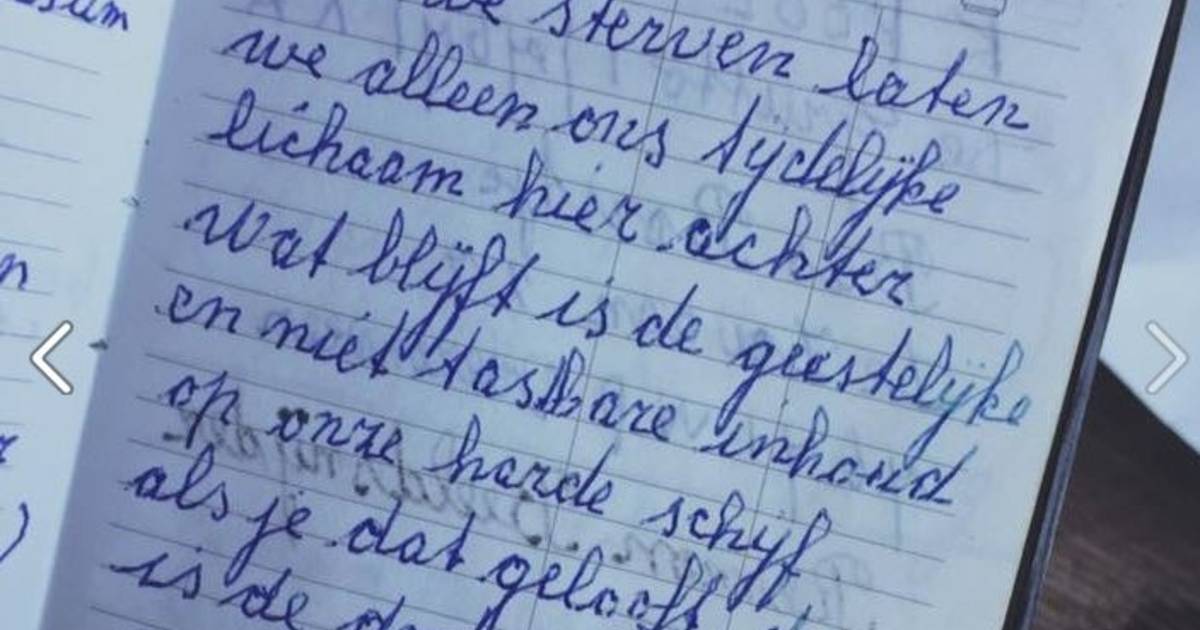 we sterven laten
we alleen ons tijdelijke
lichaam hier achter
wat blijft is de geestelijke
en niet tastbare inhoud
op onze harde schijf
als je dat gelooft
is de